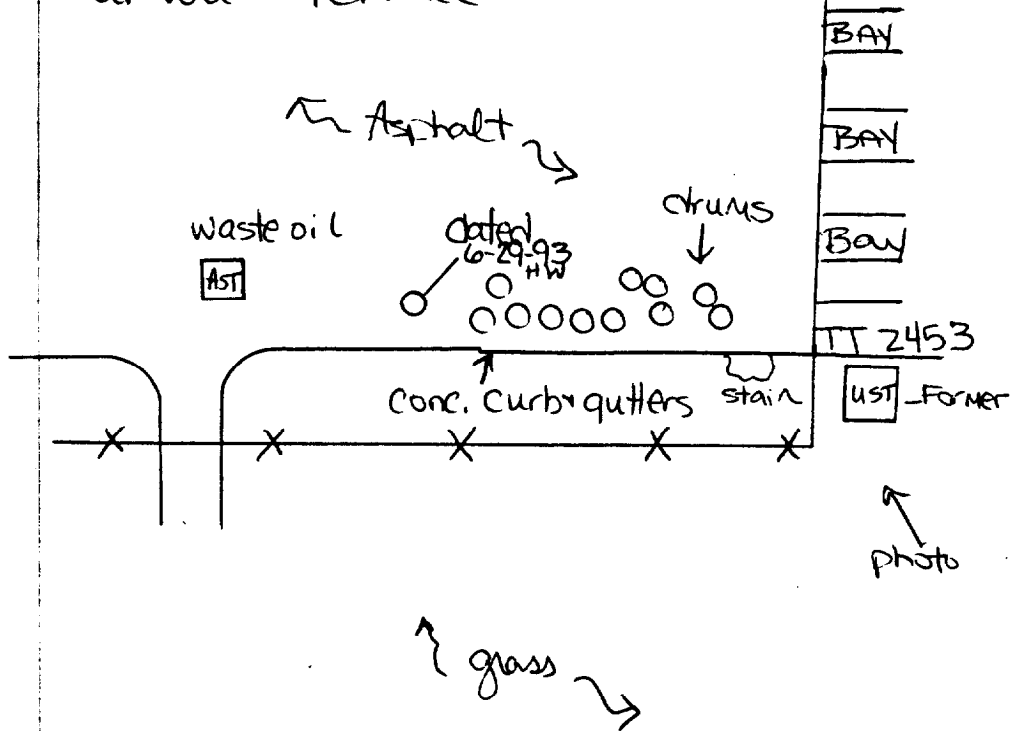 BAY
Asphalt
BAY
drums
waste oil
dated
6-29-93
HW
Bay
AST
TT 2453
conc. curb & gutters
stain
UST
Former
photo
grass